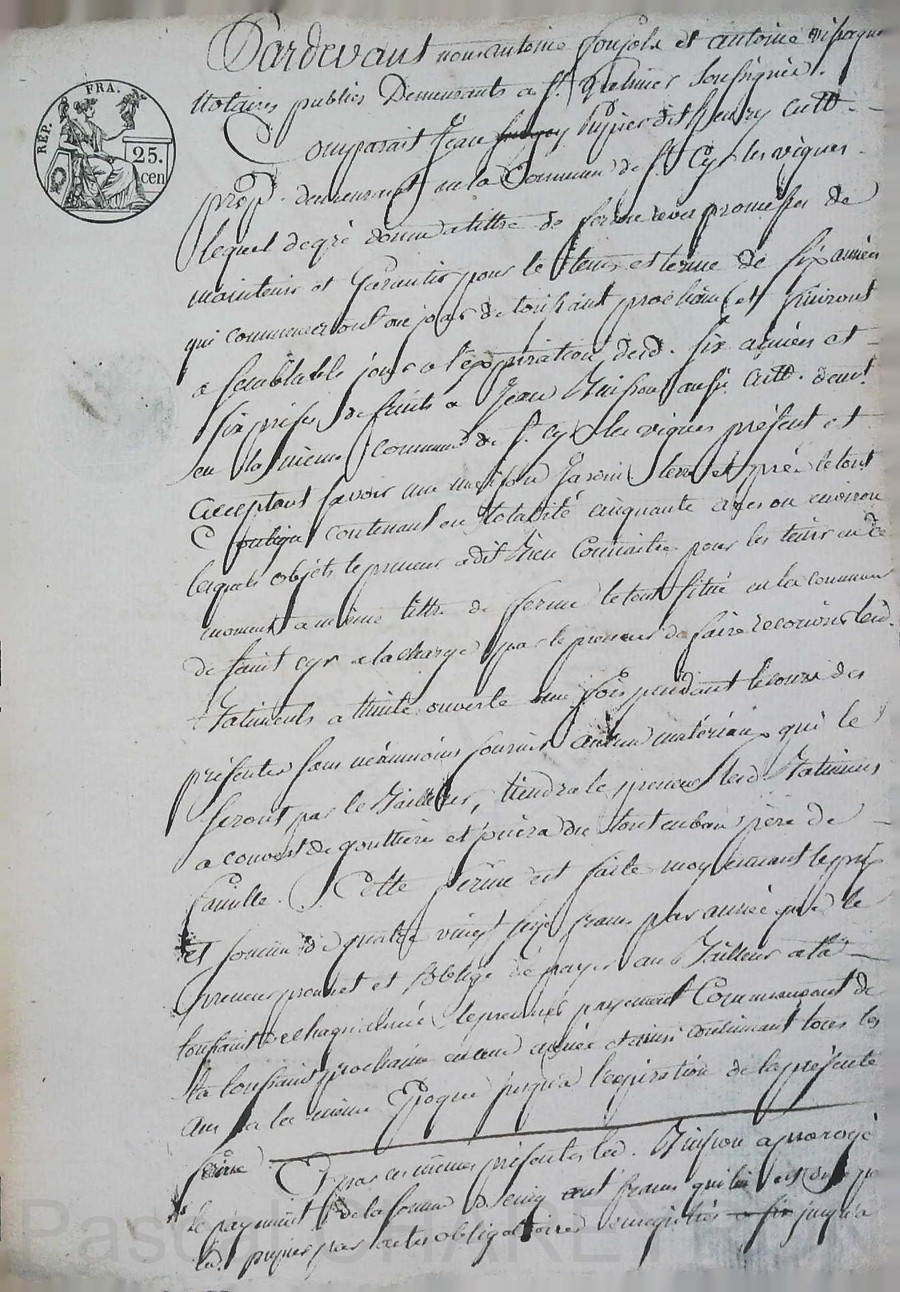 Pardevant nous antoine foujols et antoine
REP. FRA.
25.
cen
Notaires publics Demeurants a St. Galmier Soussignés.
Comparait Jean Pupier dit henry cult
prop. demeurant en la Commune de St. Cyr les vignes
lequel de gré donne a tittre de ferme avec promesses de
maintenir et Garantir pour le tems et terme de six années
qui commenceront au jour de toussaint prochain et finiront
a semblable jour a l'expiration desd. six années et
six prises de fruits a Jean aussi cult. demt.
en la même commune de St. Cyr les vignes présent et
acceptant savoir une maison Jardin terre et pré le tout
contigu contenant en totalité cinquante ares ou environ
lesquels objets le preneur a dit bien connaitre pour les tenir en ce
moment a même tittre de ferme le tout situé en la commune
de saint cyr a la charge par le preneur de faire recouvrir lesd.
Batiments a thuile ouverte une fois pendant le cours des
présentes sans néanmoins fournir aucun matériaux qui le
seront par le Bailleur, tiendra le preneur lesd. Batiments
a couvert de gouttières et jouira du tout en bon père de
famille. Cette ferme est faite moyennant le prix
et somme de quatre vingt seize francs par année que le
preneur promet et oblige de payer au Bailleur a la
toussaint de chaque année le premier payement Commencant de
la toussaint prochaine en une année et ainsi continuant tous les
ans a la même Epoque jusqu'a l'expiration de la présente
ferme. Et par ces mêmes présentes led. a prorogé
le payement de la somme de cinq cent francs qui lui est due par
led. pupier par actes obligatoires enregistrés jusqu'a
Pascal CHAREYRON